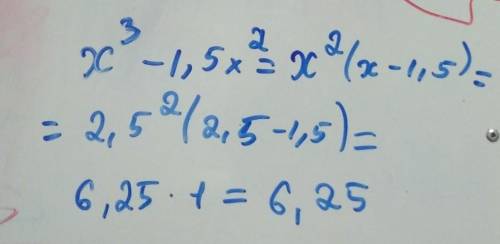 x³ - 1,5x² = x²(x - 1,5) =
= 2,5²(2,5 - 1,5) =
6,25 · 1 = 6,25